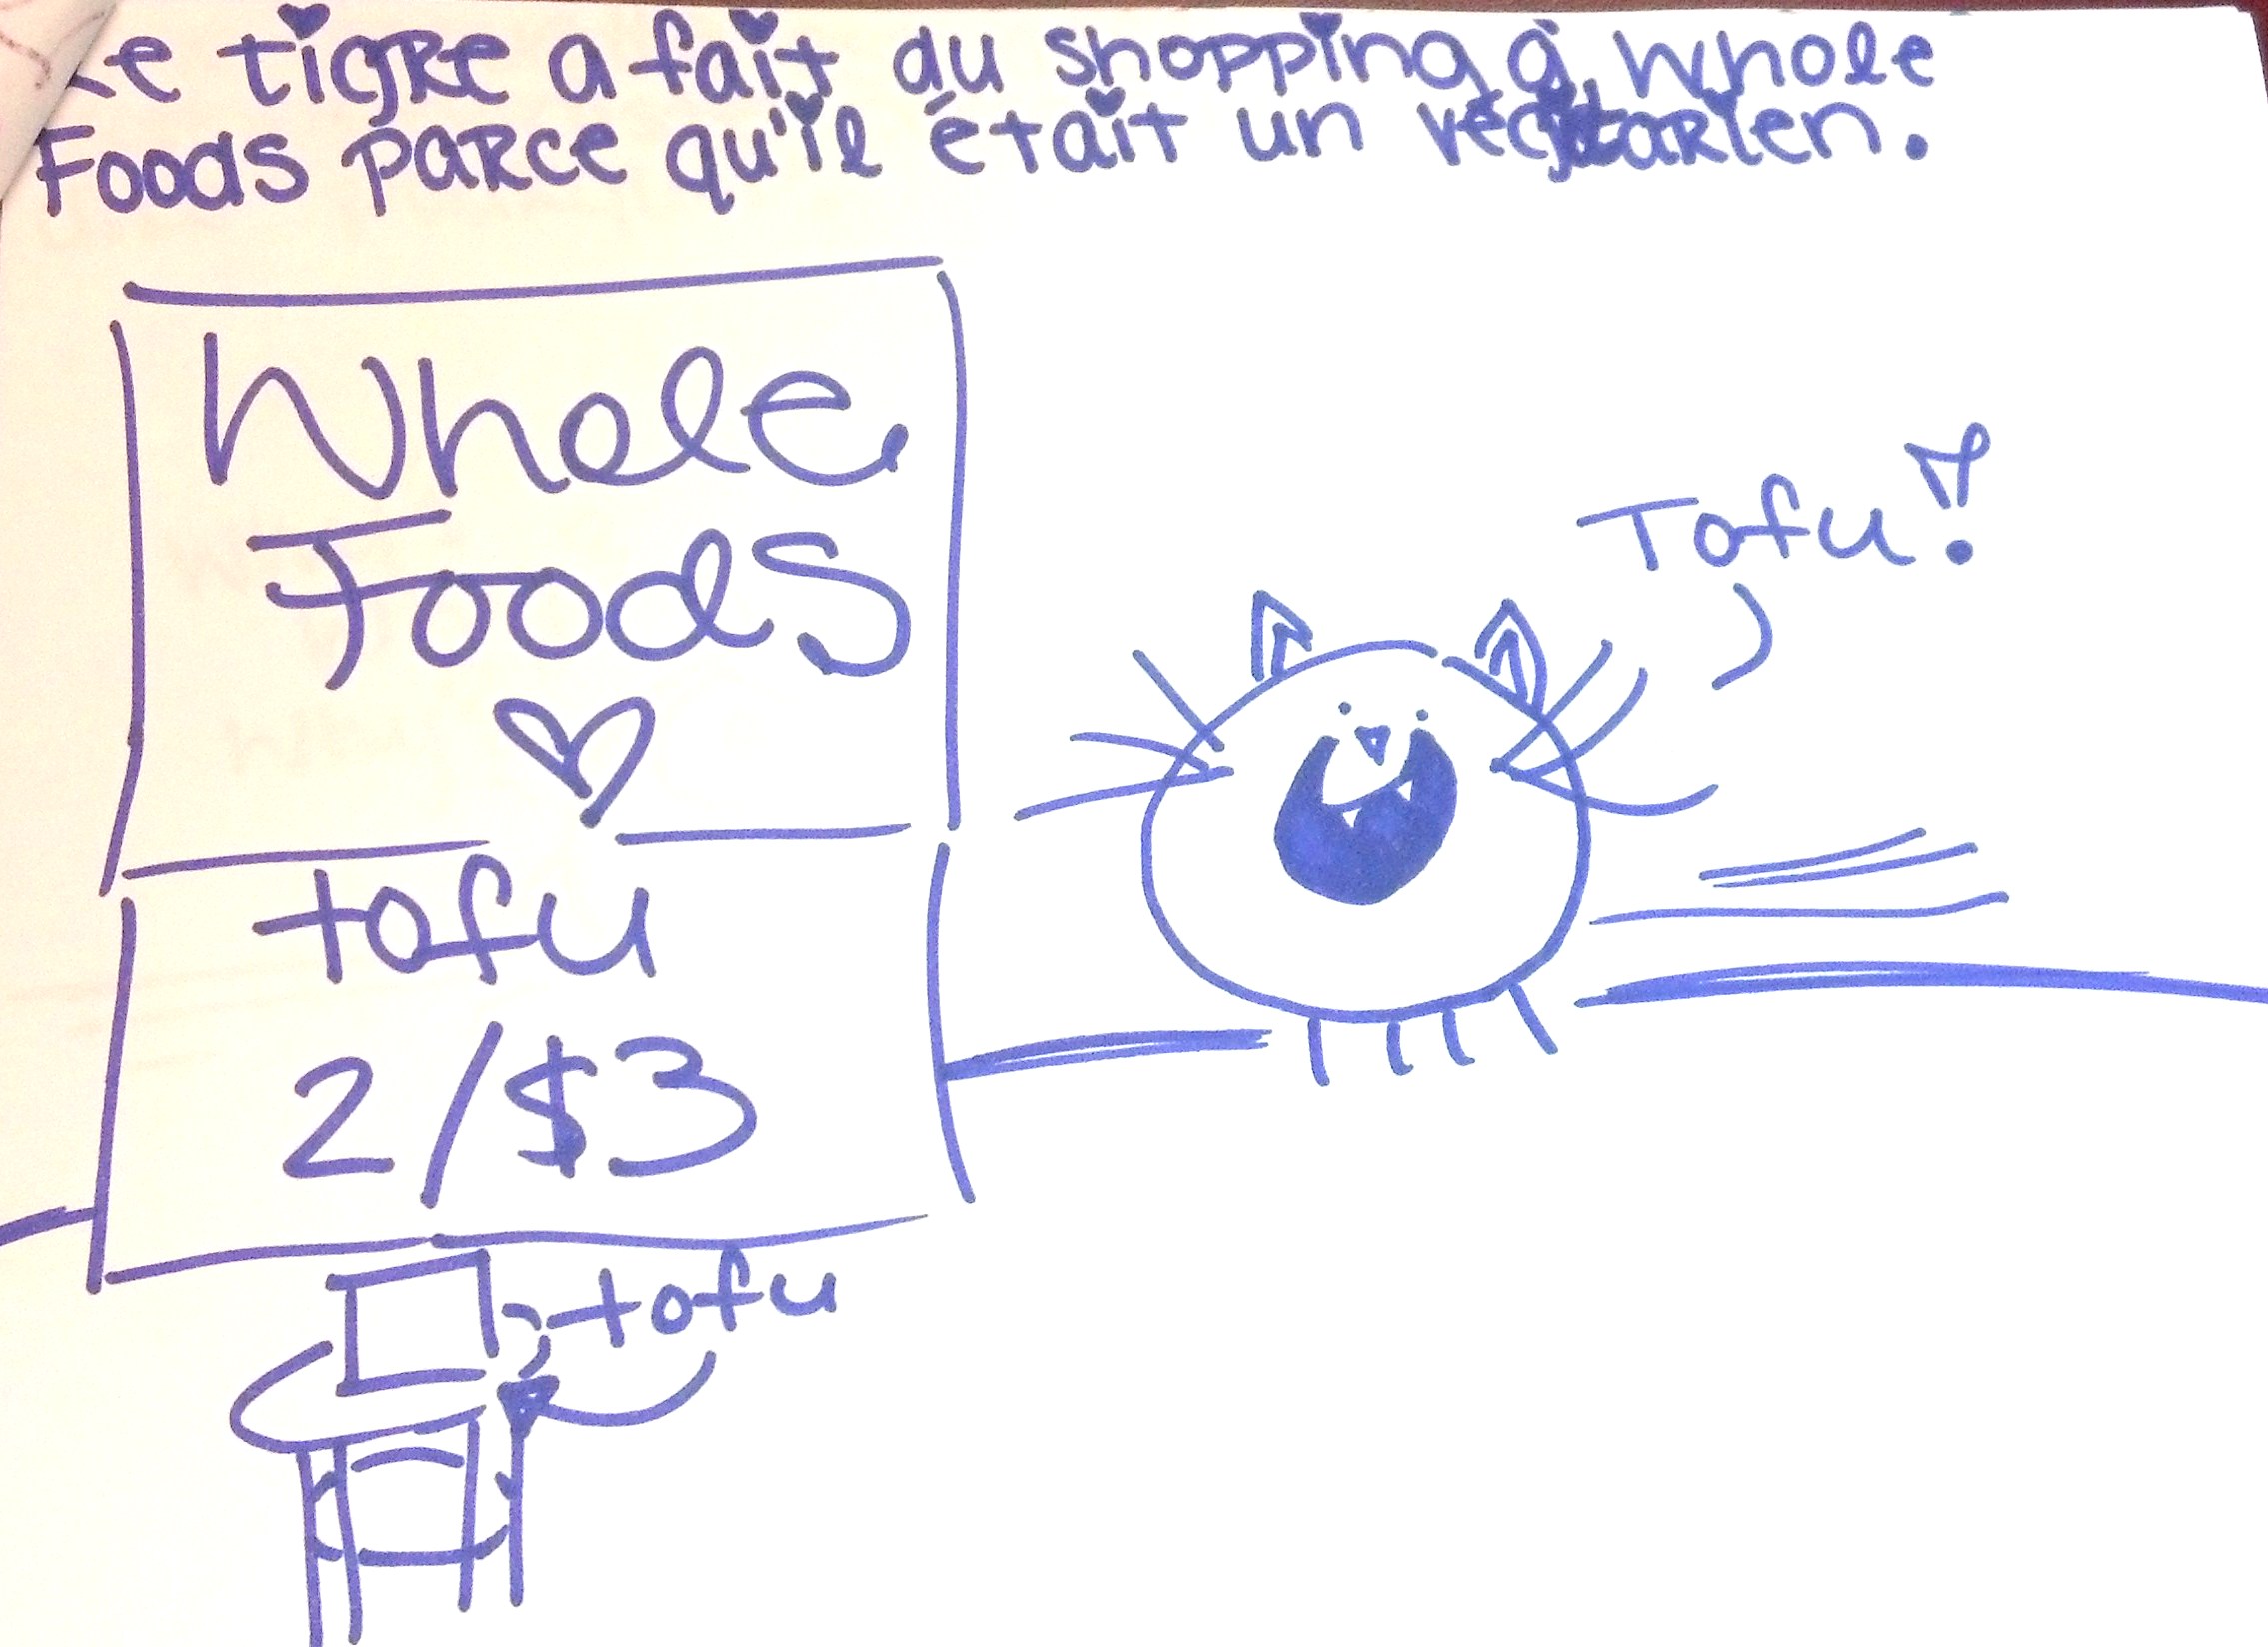 Le tigre a fait du shopping à Whole
Foods parce qu'il était un végétarien.
Whole
Foods
Tofu!
tofu
2/$3
tofu